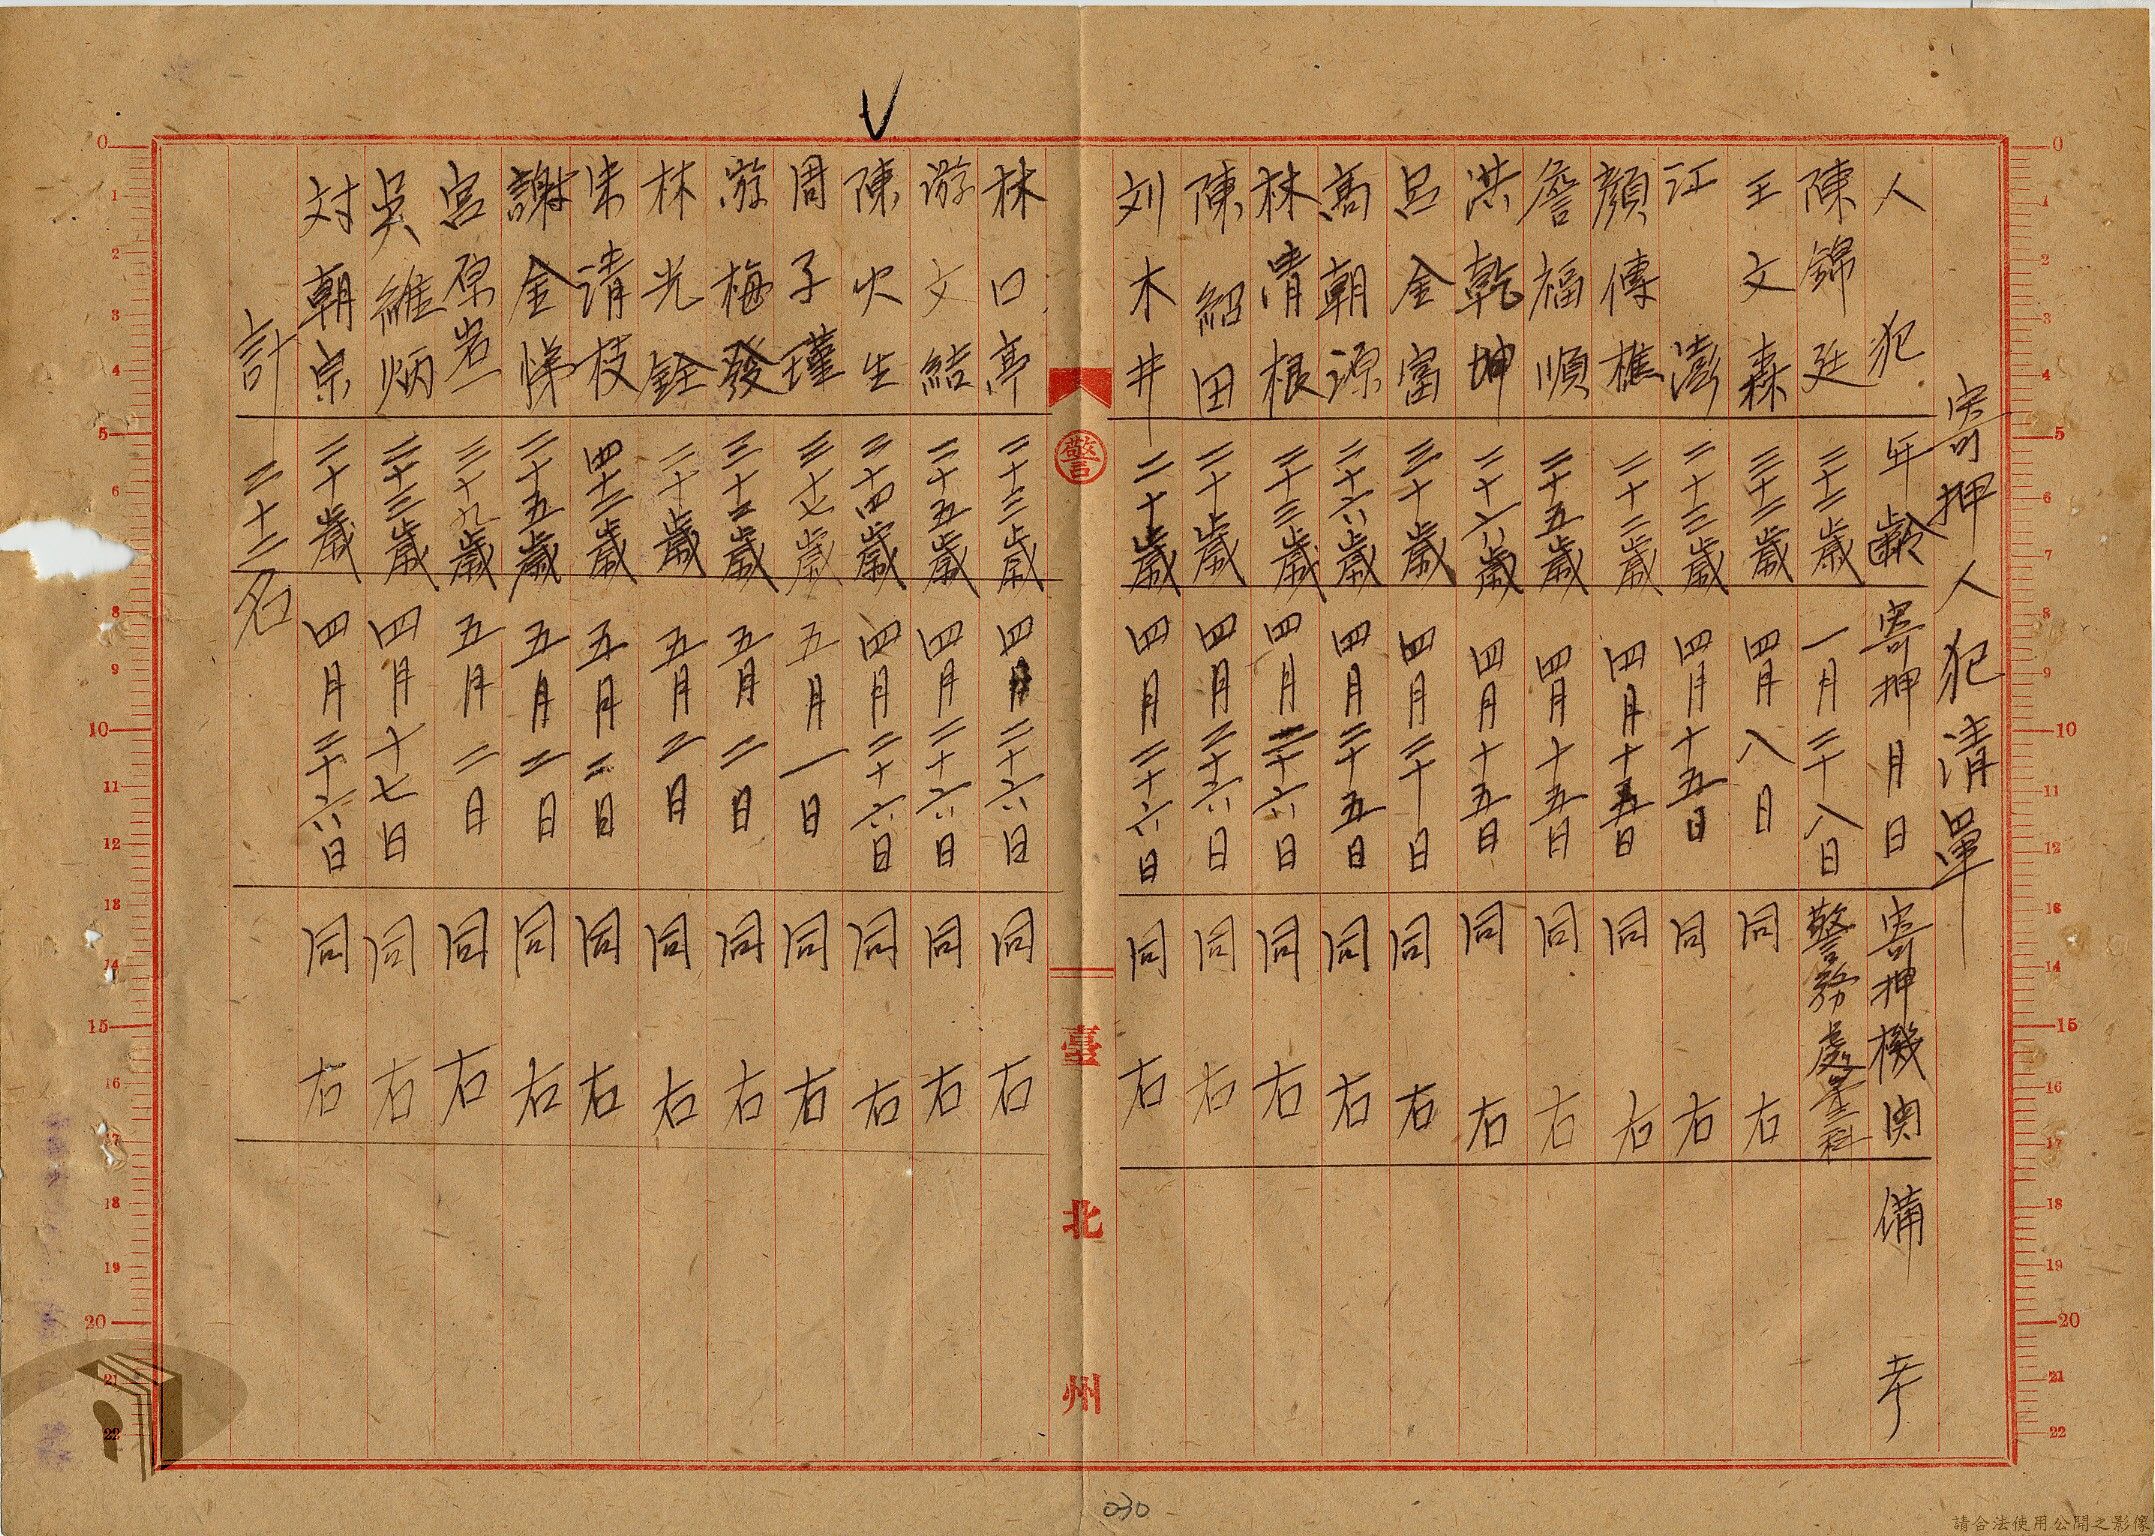 寄押人犯清單
人犯 年齡 寄押月日 寄押機関 備考
陳錦廷 二十二歲 一月二十八日 警務處第二科
王文森 二十二歲 四月八日 同右
江澎 二十三歲 四月十五日 同右
顏傳樵 二十二歲 四月十五日 同右
詹福順 二十五歲 四月十五日 同右
洪乾坤 二十六歲 四月十五日 同右
呂金富 三十歲 四月二十日 同右
高朝源 二十六歲 四月二十五日 同右
林清根 二十三歲 四月二十六日 同右
陳紹田 二十歲 四月二十六日 同右
刘木井 二十歲 四月二十六日 同右
警
臺北州
林口亭 二十三歲 四月二十六日 同右
游文結 二十五歲 四月二十六日 同右
陳火生 二十四歲 四月二十六日 同右
周子瑾 三十七歲 五月一日 同右
游梅發 三十三歲 五月二日 同右
林光銓 二十歲 五月二日 同右
朱請枝 四十二歲 五月二日 同右
謝金悌 二十五歲 五月二日 同右
宮原岩一 三十九歲 五月二日 同右
吳維炳 二十三歲 四月十七日 同右
対朝宗 二十歲 四月二十六日 同右
計 二十二名
030
請合法使用公開之影像